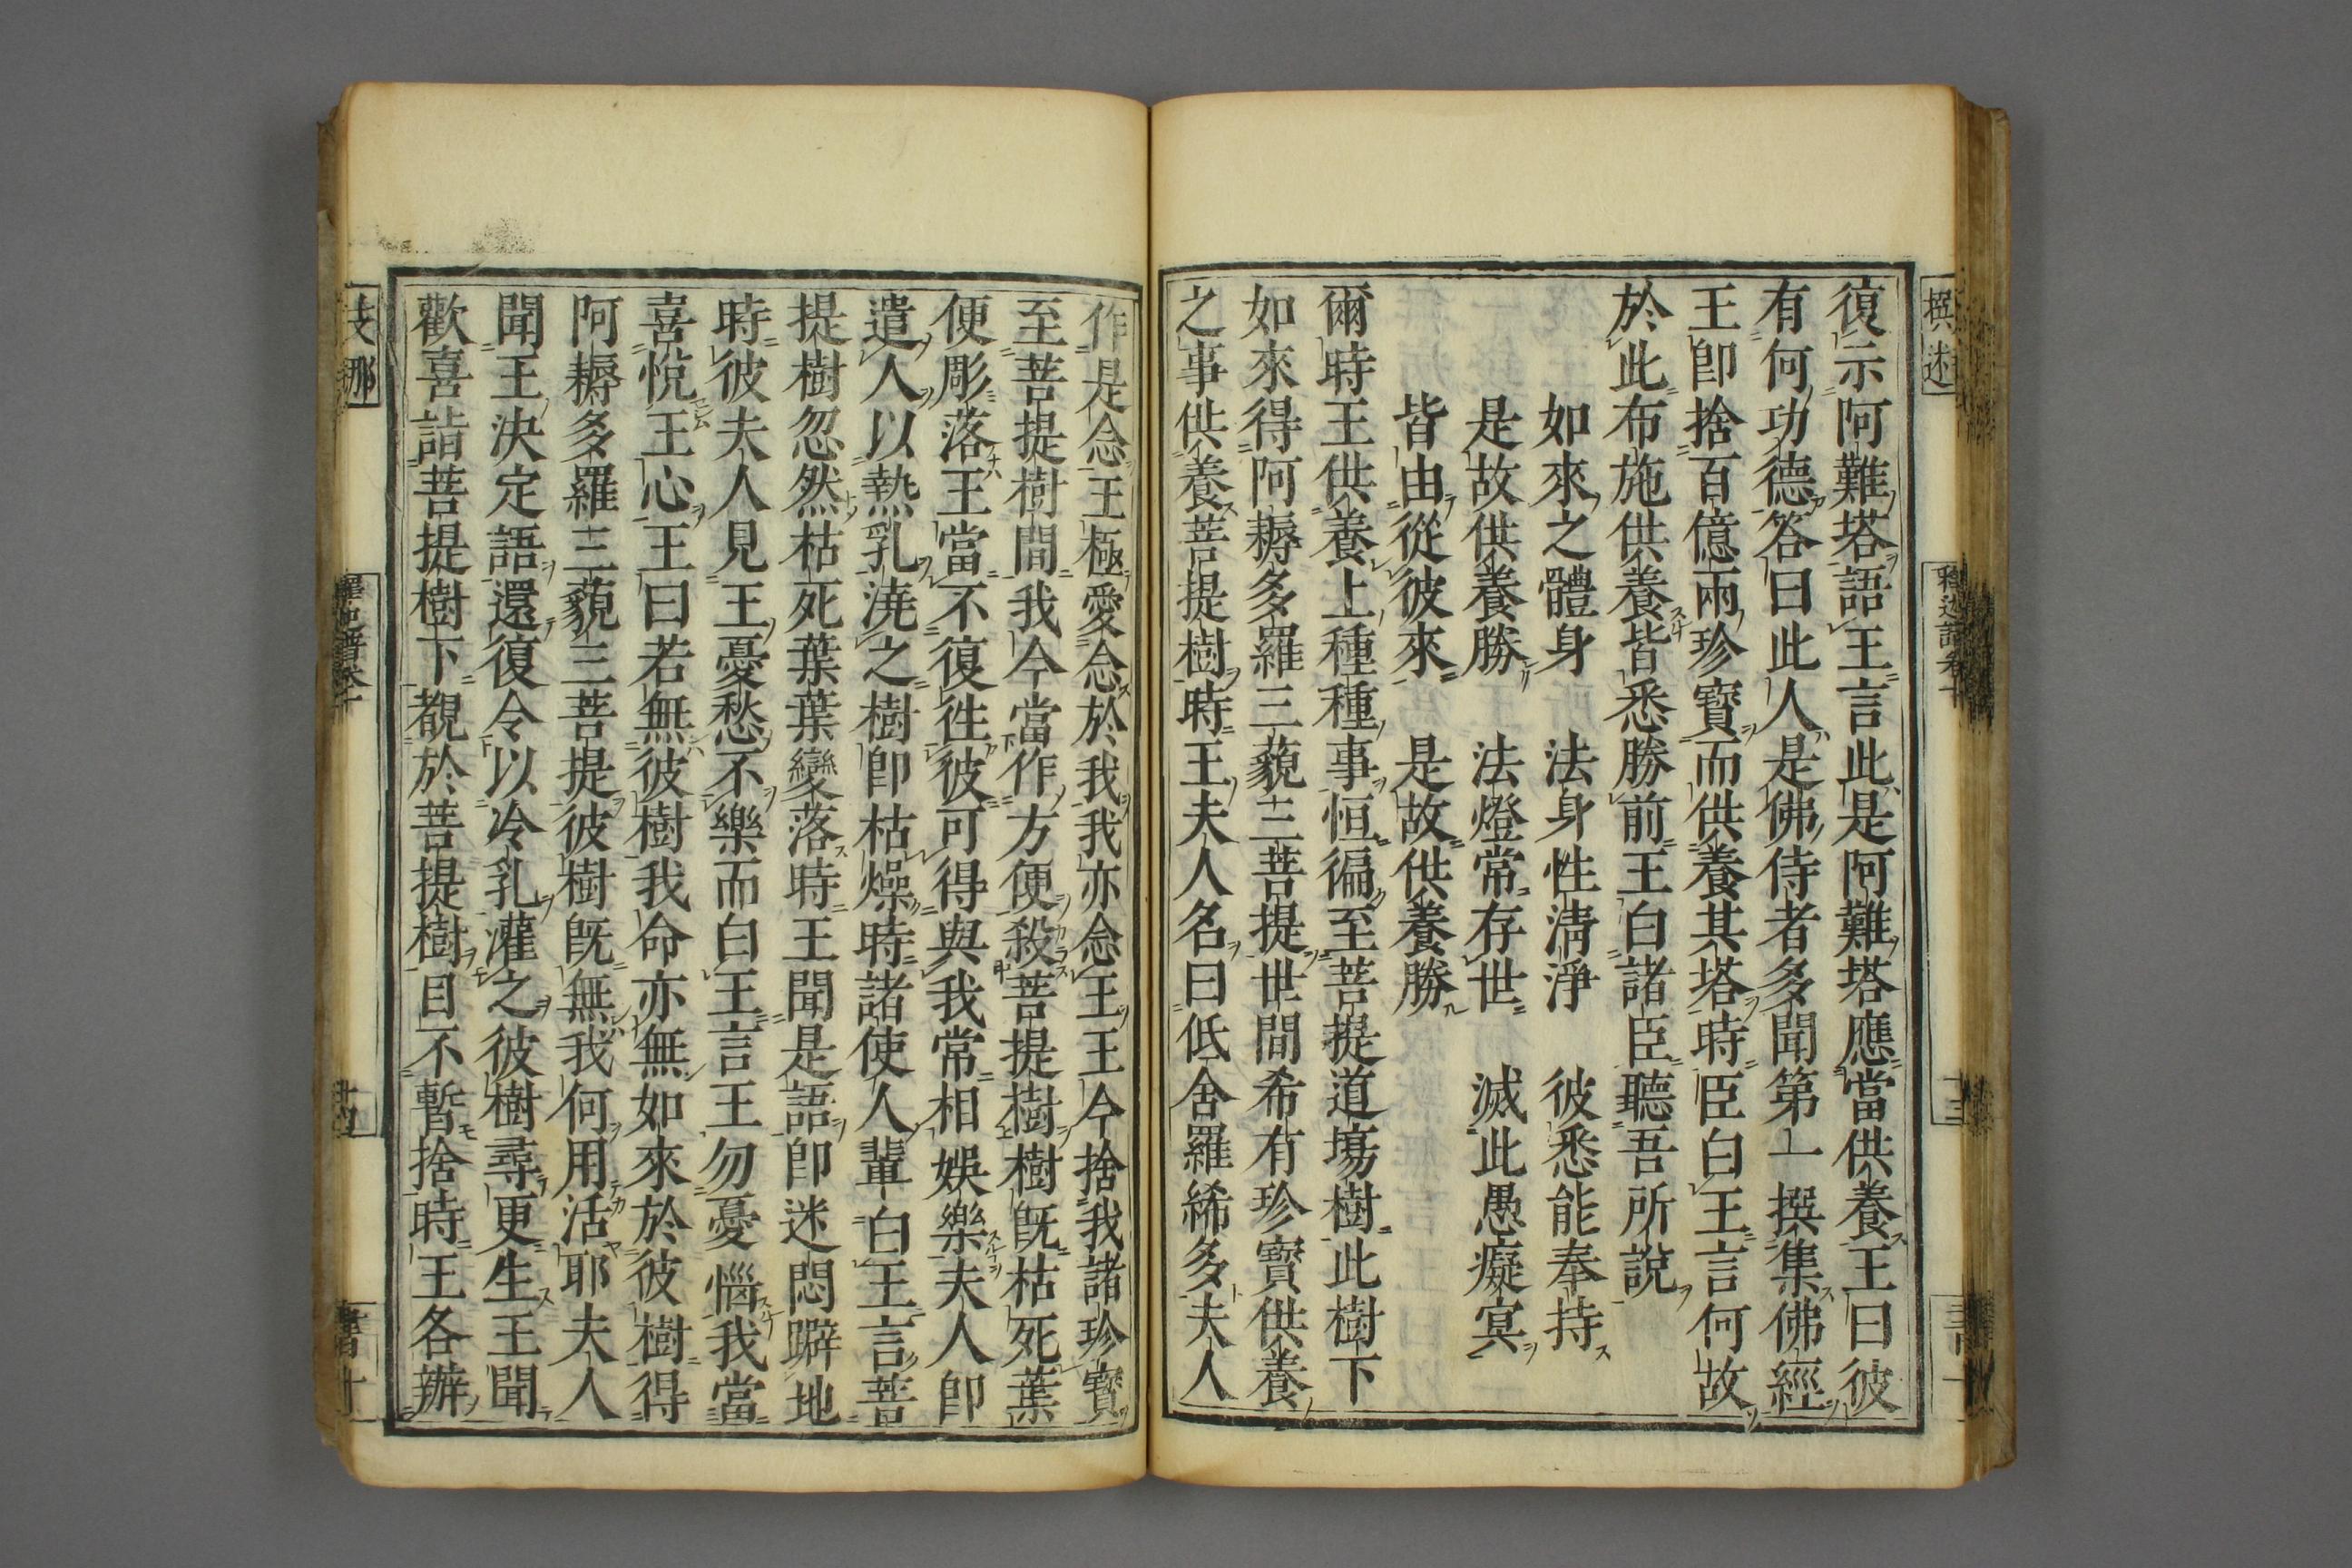 撰述
復示阿難塔語王言此是阿難塔應當供養王曰彼
有何功德答曰此人是佛侍者多聞第一撰集佛經
王卽捨百億兩珍寶而供養其塔時臣白王言何故
於此布施供養皆悉勝前王白諸臣聽吾所說
如來之體身　法身性淸淨　彼悉能奉持
是故供養勝　法燈常存世　滅此愚癡冥
皆由從彼來　是故供養勝
爾時王供養上種種事恒徧至菩提道塲樹此樹下
如來得阿耨多羅三藐三菩提世間希有珍寶供養
之事供養菩提樹時王夫人名曰低舍羅絺多夫人
作是念王極愛念於我我亦念王王今捨我諸珍寶
至菩提樹間我今當作方便殺菩提樹樹旣枯死葉
便彫落王當不復徃彼可得與我常相娛樂夫人卽
遣人以熱乳澆之樹卽枯燥時諸使人輩白王言菩
提樹忽然枯死葉葉變落時王聞是語卽迷悶躃地
時彼夫人見王憂愁不樂而白王言王勿憂惱我當
喜悅王心王曰若無彼樹我命亦無如來於彼樹得
阿耨多羅三藐三菩提彼樹旣無我何用活耶夫人
聞王決定語還復令以冷乳灌之彼樹尋更生王聞
歡喜詣菩提樹下覩於菩提樹目不暫捨時王各辦